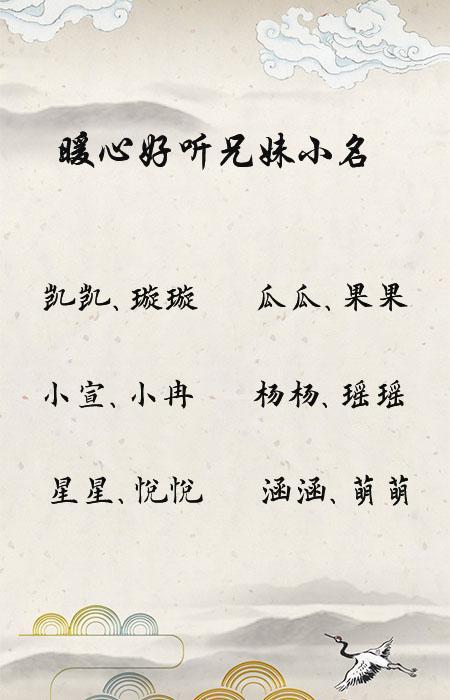 暖心好听兄妹小名
凯凯、璇璇 瓜瓜、果果
小宣、小冉 杨杨、瑶瑶
星星、悦悦 涵涵、萌萌